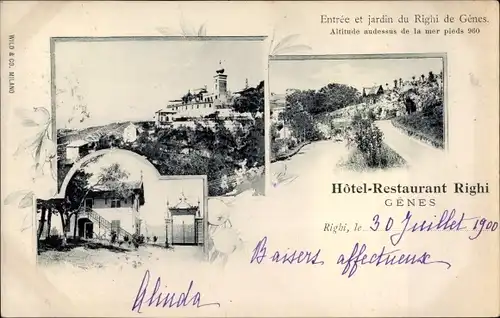 Entrée et jardin du Righi de Gênes.
Altitude audessus de la mer pieds 960
WILD & CO., MILANO
Hôtel-Restaurant Righi
GÊNES
Righi, le 30 Juillet 1900
Baisers affectueux
Alinda